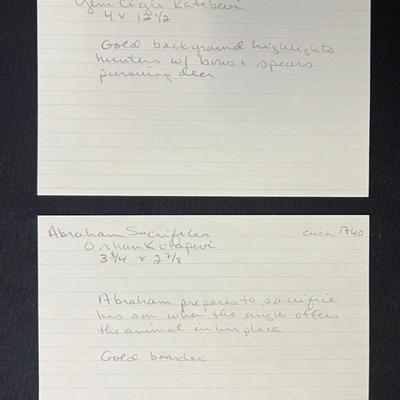 Yeni Çigir Katebevi
4 x 12 1/2
Gold background highlights
hunters w/ bows + spears
pursuing deer
Abraham Sacrifices circa 1740
Orhan Kitapevi
3 3/4 x 2 7/8
Abraham prepares to sacrifice
his son when the angle offers
the animal in his place
Gold boarder